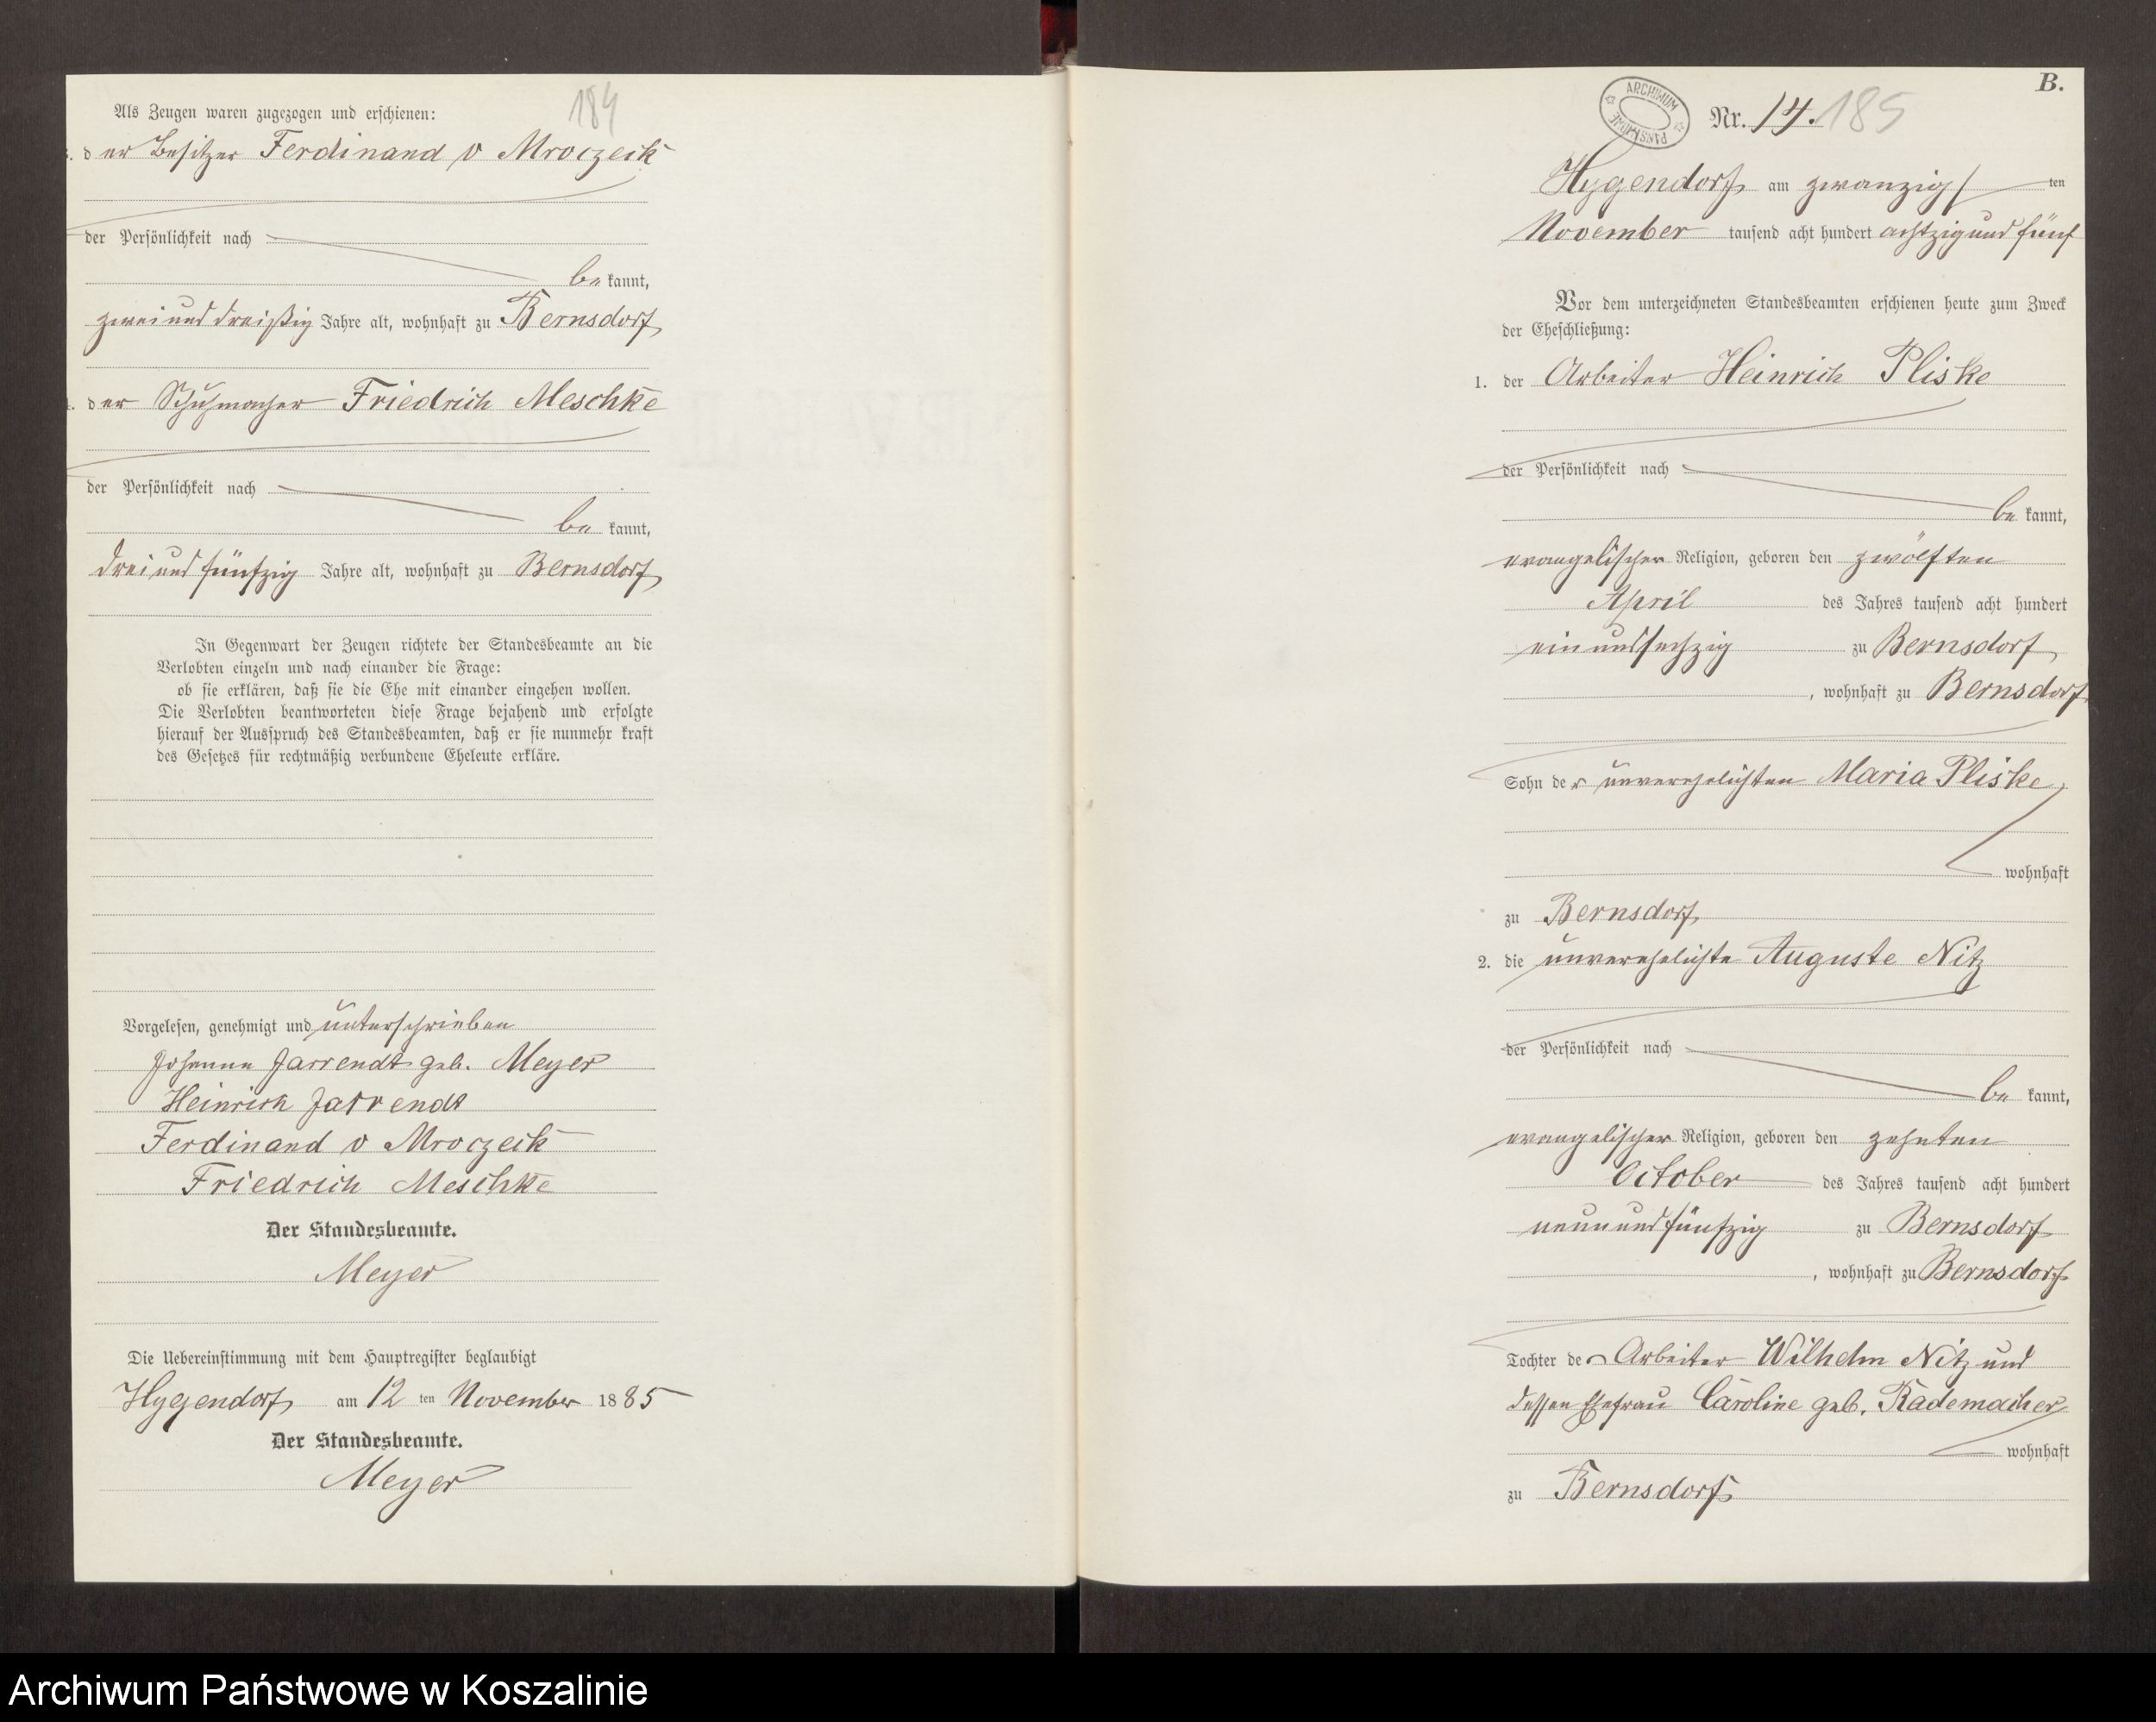 184
Als Zeugen waren zugezogen und erschienen:
der Besitzer Ferdinand v Mroczeck
der Persönlichkeit nach
be kannt,
zweiunddreißig Jahre alt, wohnhaft zu Bernsdorf,
der Schuhmacher Friedrich Meschke
der Persönlichkeit nach
be kannt,
dreiundfünfzig Jahre alt, wohnhaft zu Bernsdorf,
In Gegenwart der Zeugen richtete der Standesbeamte an die
Verlobten einzeln und nach einander die Frage:
ob sie erklären, daß sie die Ehe mit einander eingehen wollen.
Die Verlobten beantworteten diese Frage bejahend und erfolgte
hierauf der Ausspruch des Standesbeamten, daß er sie nunmehr kraft
des Gesetzes für rechtmäßig verbundene Eheleute erkläre.
Vorgelesen, genehmigt und unterschrieben
Johanna Jarrendt geb. Meyer
Heinrich Jarrendt
Ferdinand v Mroczeck
Friedrich Meschke
Der Standesbeamte.
Meyer
Die Uebereinstimmung mit dem Hauptregister beglaubigt
Hygendorf, am 12 ten November 1885
Der Standesbeamte.
Meyer
B.
ARCHIWUM PAŃSTWOWE
Nr. 14. 185
Hygendorf am zwanzigs ten
November tausend acht hundert achtzig und fünf
Vor dem unterzeichneten Standesbeamten erschienen heute zum Zweck
der Eheschließung:
1. der Arbeiter Heinrich Pliske
der Persönlichkeit nach
be kannt,
evangelischer Religion, geboren den zwölften
April des Jahres tausend acht hundert
einundsechzig zu Bernsdorf
, wohnhaft zu Bernsdorf
Sohn der unverehelichten Maria Pliske,
wohnhaft
zu Bernsdorf,
2. die unverehelichte Auguste Nitz
der Persönlichkeit nach
be kannt,
evangelischer Religion, geboren den zehnten
October des Jahres tausend acht hundert
neunundfünfzig zu Bernsdorf
, wohnhaft zu Bernsdorf
Tochter des Arbeiter Wilhelm Nitz und
dessen Ehefrau Caroline geb. Rademacher
wohnhaft
zu Bernsdorf
Archiwum Państwowe w Koszalinie